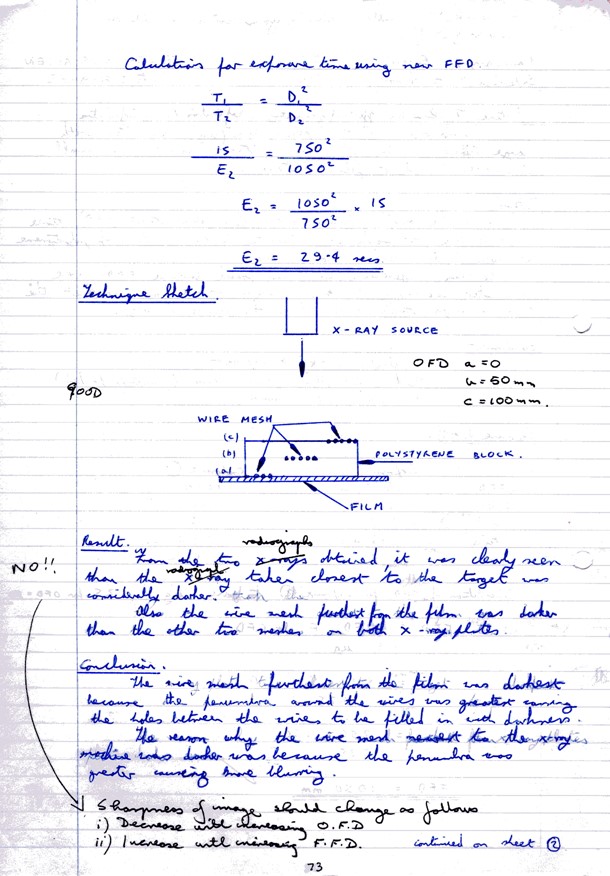 Calculations for exposure time using new FFD.
T₁ / T₂ = D₁² / D₂²
15 / E₂ = 750² / 1050²
E₂ = 1050² / 750² × 15
E₂ = 29.4 secs
Technique Sketch.
X-RAY SOURCE
OFD a = 0
b = 50 mm
c = 100 mm.
GOOD
WIRE MESH
(c)
(b)
(a)
POLYSTYRENE BLOCK.
FILM
Result.
radiographs
From the two x-rays obtained, it was clearly seen
NO!!
than the x-ray taken closest to the target was
considerably darker.
Also the wire mesh furthest from the film was darker
than the other two meshes on both x-ray plates.
Conclusion.
The wire mesh furthest from the film was darkest
because the penumbra around the wires was greatest causing
the holes between the wires to be filled in with darkness.
The reason why the wire mesh nearest to the x-ray
machine was darker was because the penumbra was
greater causing more blurring.
Sharpness of image should change as follows
i) Decrease with increasing O.F.D
ii) Increase with increasing F.F.D.
continued on sheet ②
73